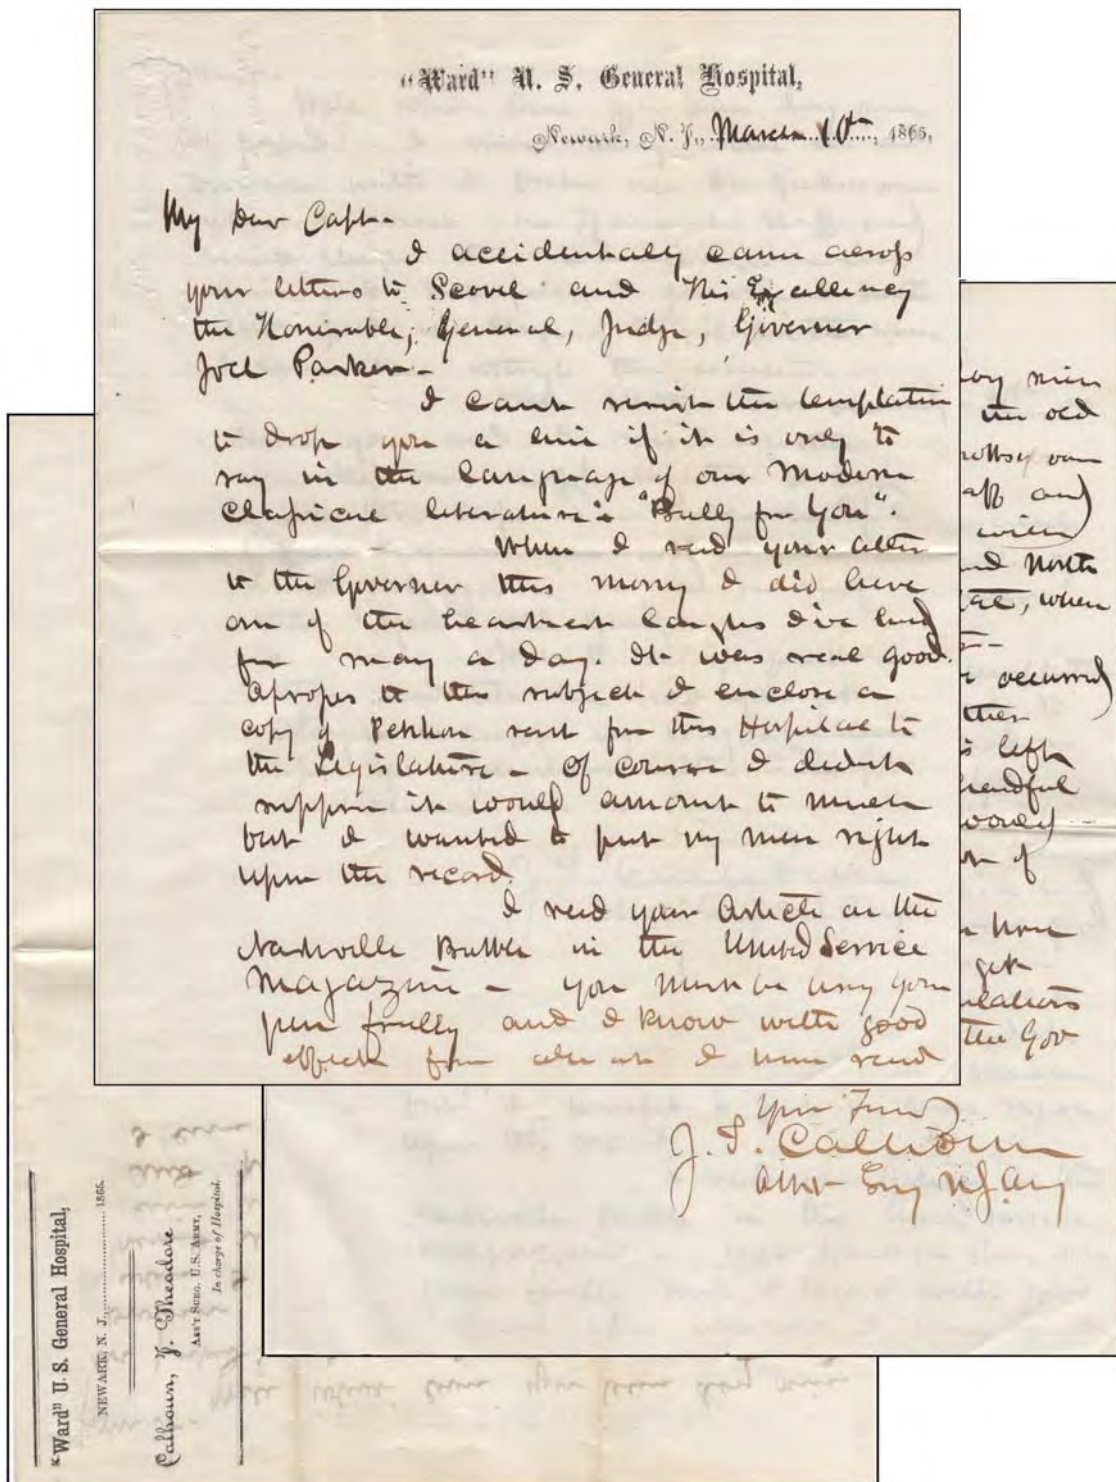 "Ward" U. S. General Hospital,
Newark, N. J., March 10th, 1865,
My Dear Capt-
I accidentally came across
your letters to Scovel and His Excellency
the Honirable, General, Judge, Governer
Joel Parker-
I cant resist the temptation
to drop you a line if it is only to
say in the language of our modern
classical literature "Bully for You".
When I read your letter
to the Governer this morng I did have
one of the heartiest laughs I've had
for many a day. It was real good.
Apropos to this subject I enclose a
copy of Petition sent from this Hospital to
the Legislature - Of course I didnt
suppose it would amount to much
but I wanted to put my men right
upon the record.
I read your Article on the
Nashville Battle in the United Service
Magazine - you must be using your
pen freely and I know with good
effect from what I have read
the old
and
with
and North
when
occurred
ther
left
handful
of
get
the Gov
Your Friend
J. T. Calhoun
Asst Surg U.S. Army
"Ward" U. S. General Hospital,
NEWARK, N. J., 1865.
Calhoun, J. Theodore
Ass't Surg. U.S. Army,
In charge of Hospital.